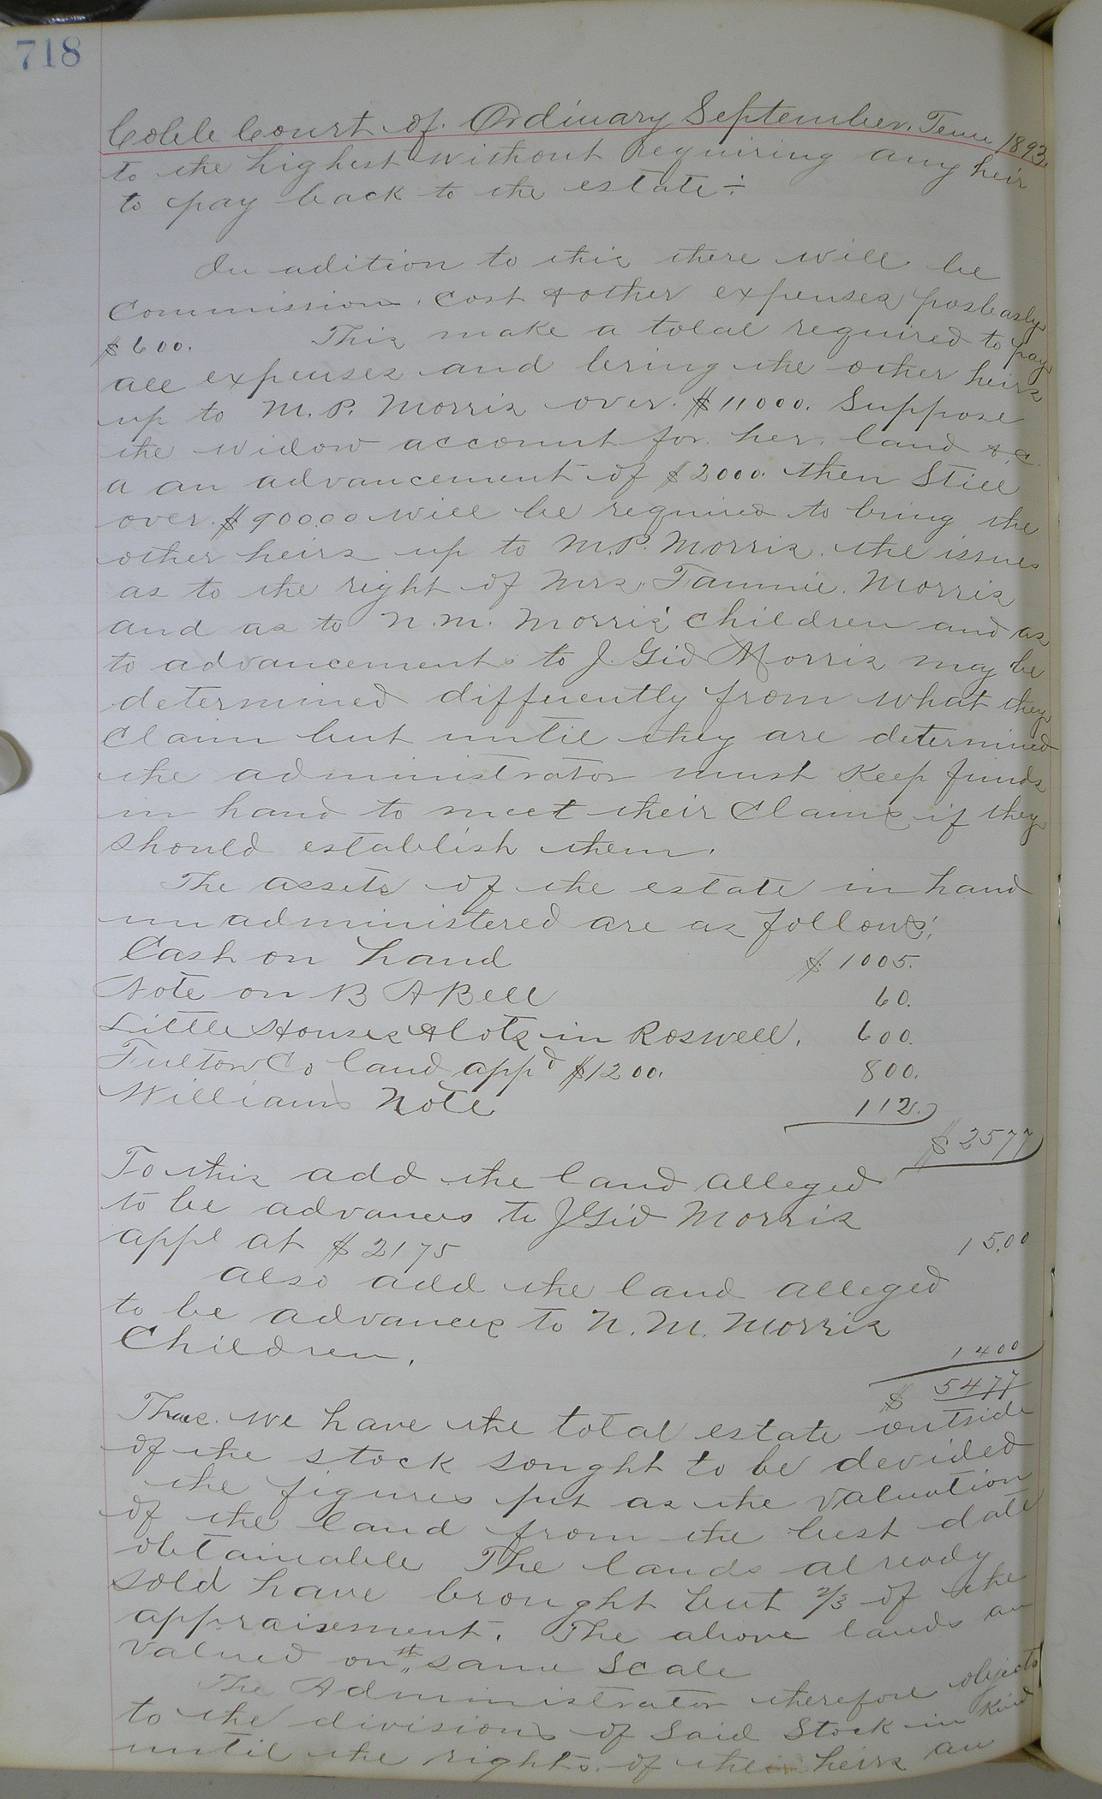 718
Cobb Court of Ordinary September Term 1893.
to the highest without requiring any heir
to pay back to the estate ÷
In adition to this there will be
Commission, cost & other expenses
$600. This make a total required to pay
all expenses and bring the other heirs
up to M. P. Morris over $11000. Suppose
the widow account for her land &.c.
a an advancement of $2000. then Still
over $9000.00 will be required to bring the
other heirs up to M.P. Morris. the issues
as to the right of Mrs. Tammie Morris
and as to N. M. Morris' children and as
to advancements to J. Gid Morris may be
determined differently from what they
Claim but until they are determined
the administrator must Keep funds
in hand to meet their Claims if they
should establish them.
The assets of the estate in hand
unadministered are as follows:
Cash on hand $1005.
Note on B A Bell 60.
Little Houses & lots in Roswell, 600.
Fulton Co land appd $1200. 800.
Williams Note 112.
$2577
To this add the land alleged
to be advances to J Gid Morris
appd at $2175 15.00
also add the land alleged
to be advances to N. M. Morris
Children. 1400
$ 5477
Thus we have the total estate outside
of the stock sought to be devided
the figures put as the valuation
of the land from the best data
obtainable The lands already
sold have brought but 2/3 of the
appraisement. The above lands are
valued on the same Scale
The Administrator therefore objects
to the divisions of Said Stock in Kind
until the rights of their heirs are